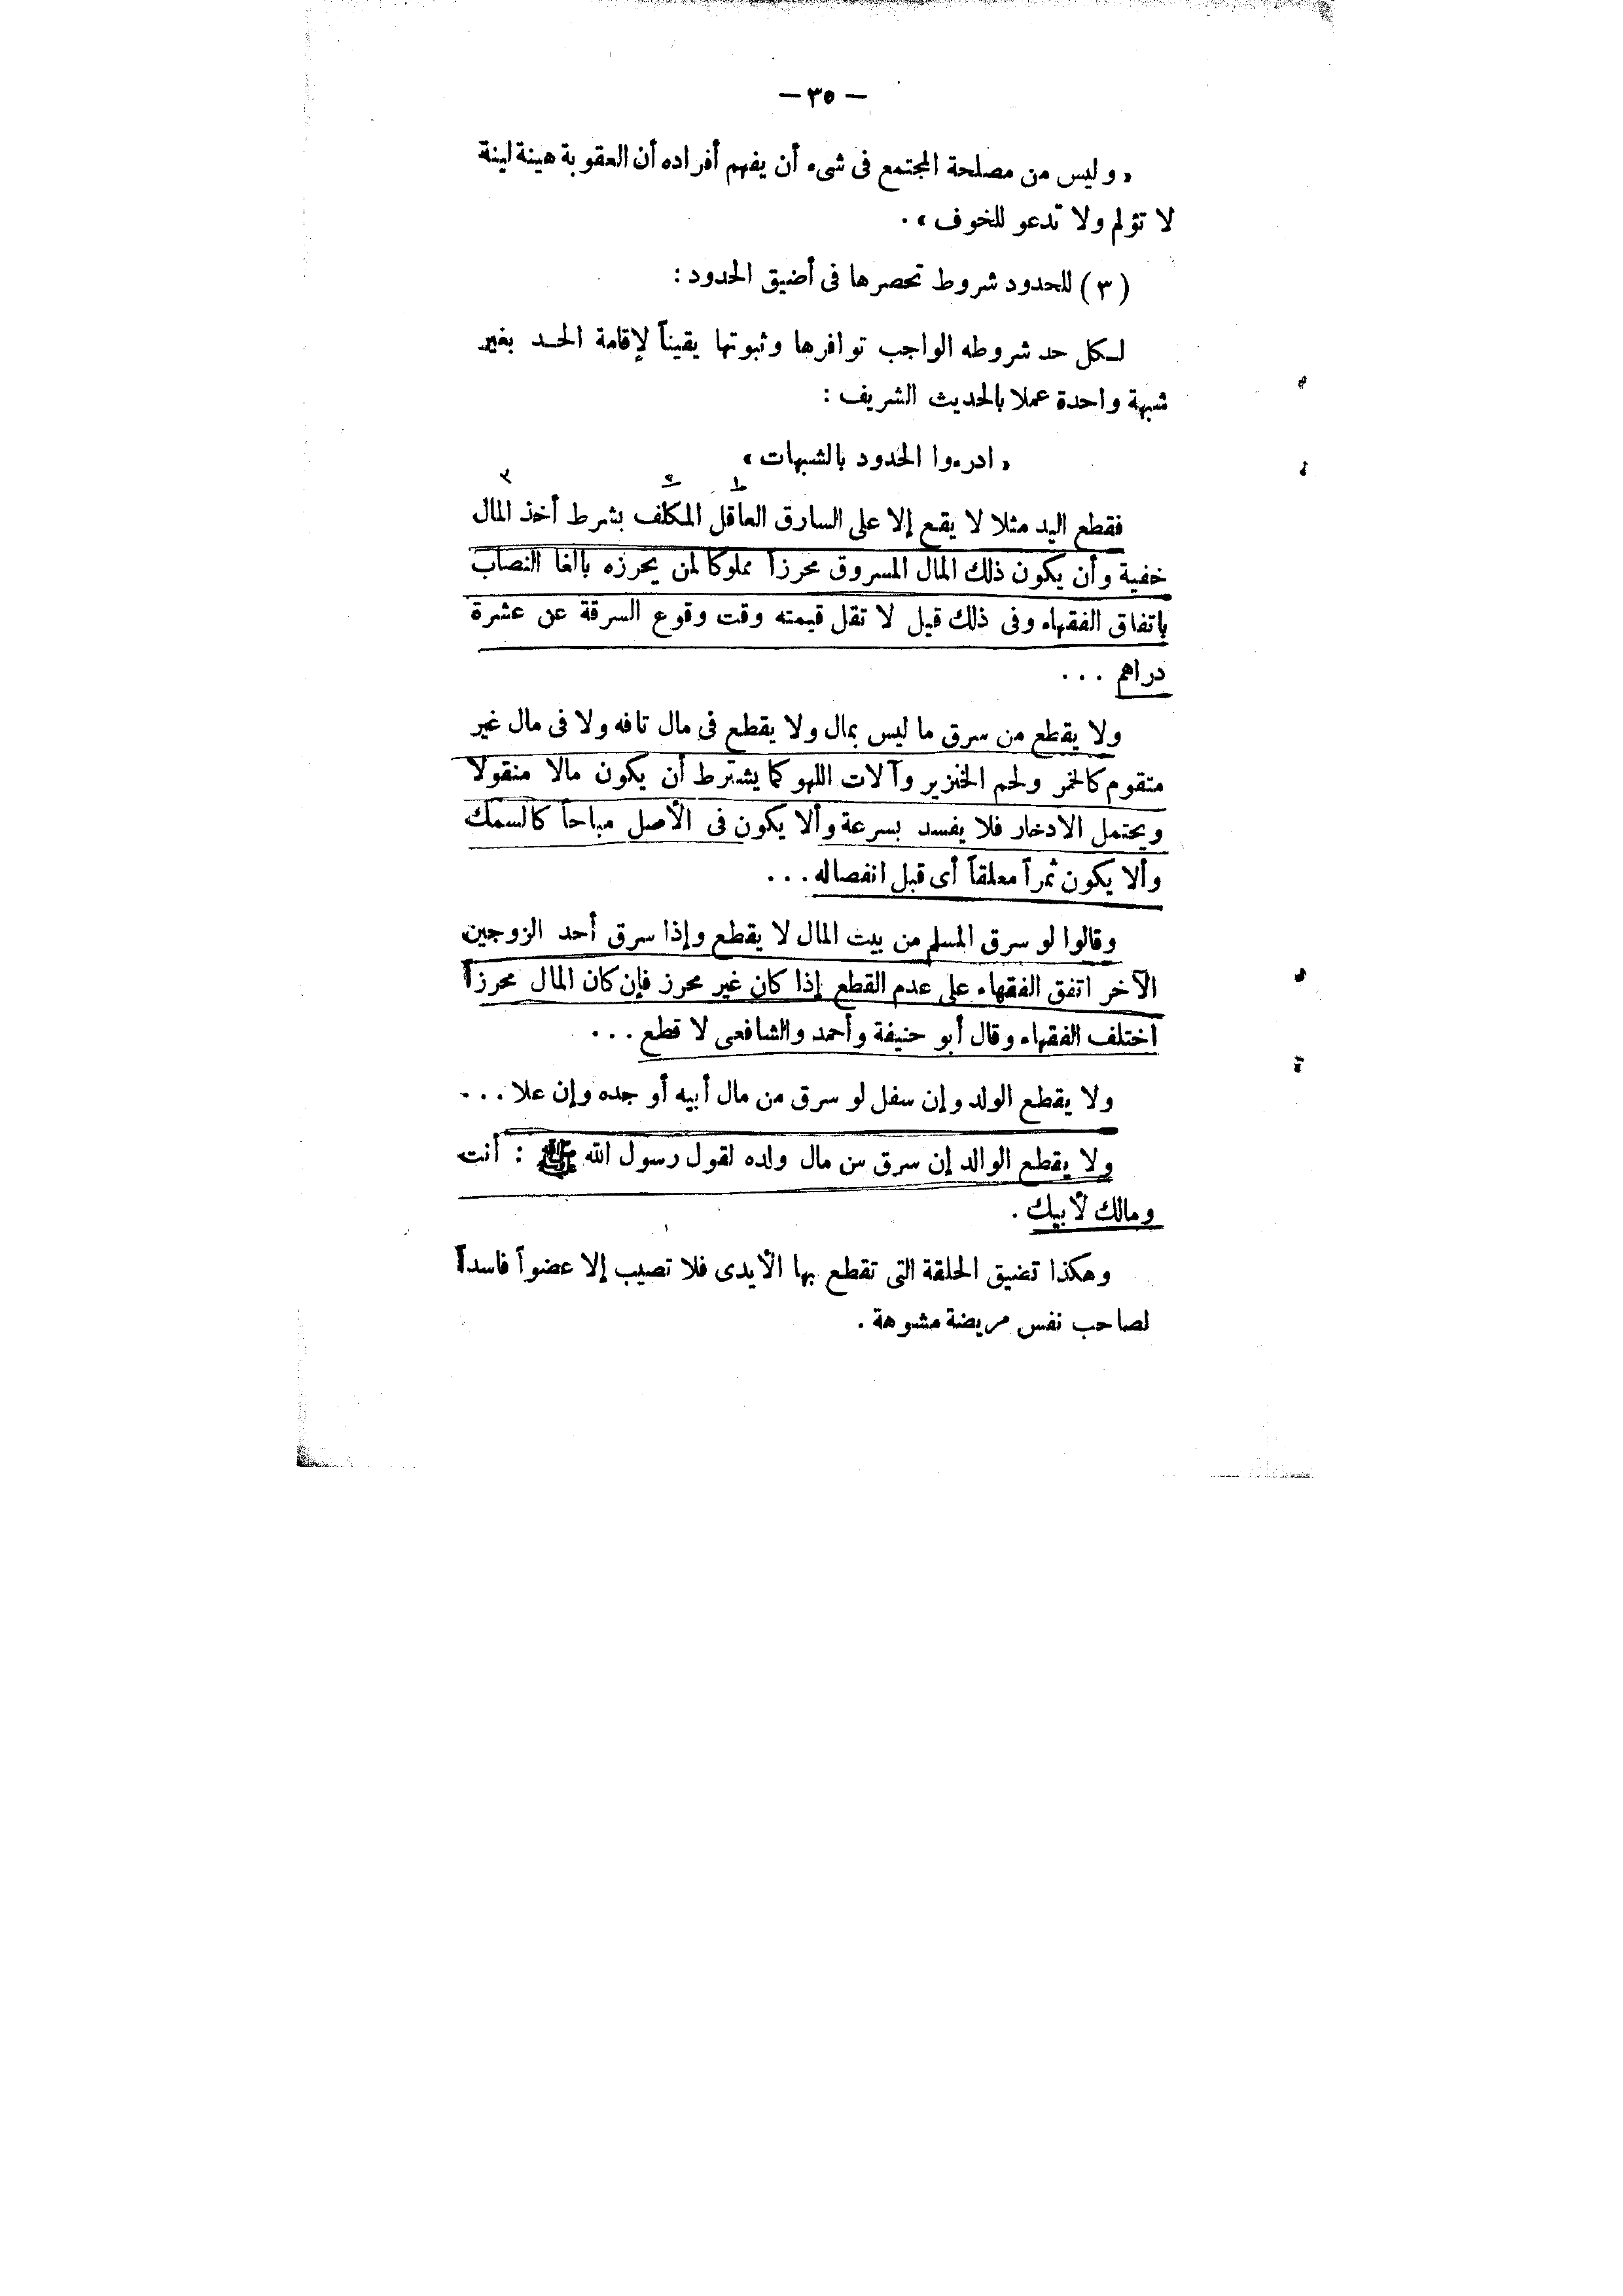 — ٣٥ —
« وليس من مصلحة المجتمع فى شىء أن يفهم أفراده أن العقوبة هينة لينة
لا تؤلم ولا تدعو للخوف » .
( ٣ ) للحدود شروط تحصرها فى أضيق الحدود :
لكل حد شروطه الواجب توافرها وثبوتها يقيناً لإقامة الحد بغير
شبهة واحدة عملا بالحديث الشريف :
« ادرءوا الحدود بالشبهات »
١ ٢ ٣
فقطع اليد مثلا لا يقع إلا على السارق العاقل المكلف بشرط أخذ المال
خفية وأن يكون ذلك المال المسروق محرزاً مملوكا لمن يحرزه بالغا النصاب
باتفاق الفقهاء وفى ذلك قيل لا تقل قيمته وقت وقوع السرقة عن عشرة
دراهم ...
ولا يقطع من سرق ما ليس بمال ولا يقطع فى مال تافه ولا فى مال غير
متقوم كالخمر ولحم الخنزير وآلات اللهو كما يشترط أن يكون مالا منقولا
ويحتمل الادخار فلا يفسد بسرعة وألا يكون فى الأصل مباحاً كالسمك
وألا يكون ثمراً معلقاً أى قبل انفصاله ...
وقالوا لو سرق المسلم من بيت المال لا يقطع وإذا سرق أحد الزوجين
الآخر اتفق الفقهاء على عدم القطع إذا كان غير محرز فإن كان المال محرزاً
اختلف الفقهاء وقال أبو حنيفة وأحمد والشافعى لا قطع ...
ولا يقطع الولد وإن سفل لو سرق من مال أبيه أو جده وإن علا ...
ولا يقطع الوالد إن سرق من مال ولده لقول رسول الله ﷺ : أنت
ومالك لأبيك .
وهكذا تضيق الحلقة التى تقطع بها الأيدى فلا تصيب إلا عضواً فاسداً
لصاحب نفس مريضة مشوهة .